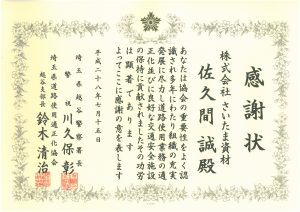 感謝状
株式会社 さいたま資材
佐久間誠殿
あなたは協会の重要性をよく認
識され多年にわたり組織の充実
発展に尽力し道路使用業務の適
正化並びに良好な交通安全施設
の保持に貢献されましたその功労
は顕著であります
よってここに感謝の意を表します
平成二十八年七月十五日
埼玉県越谷警察署長
警視 川久保彰
埼玉県道路使用適正化協会
越谷支部長 鈴木清治